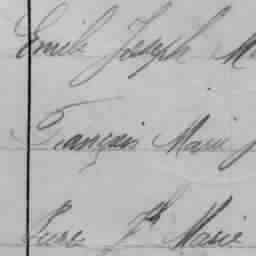 Emile Joseph M
François Marie J
Pierre Jh Marie